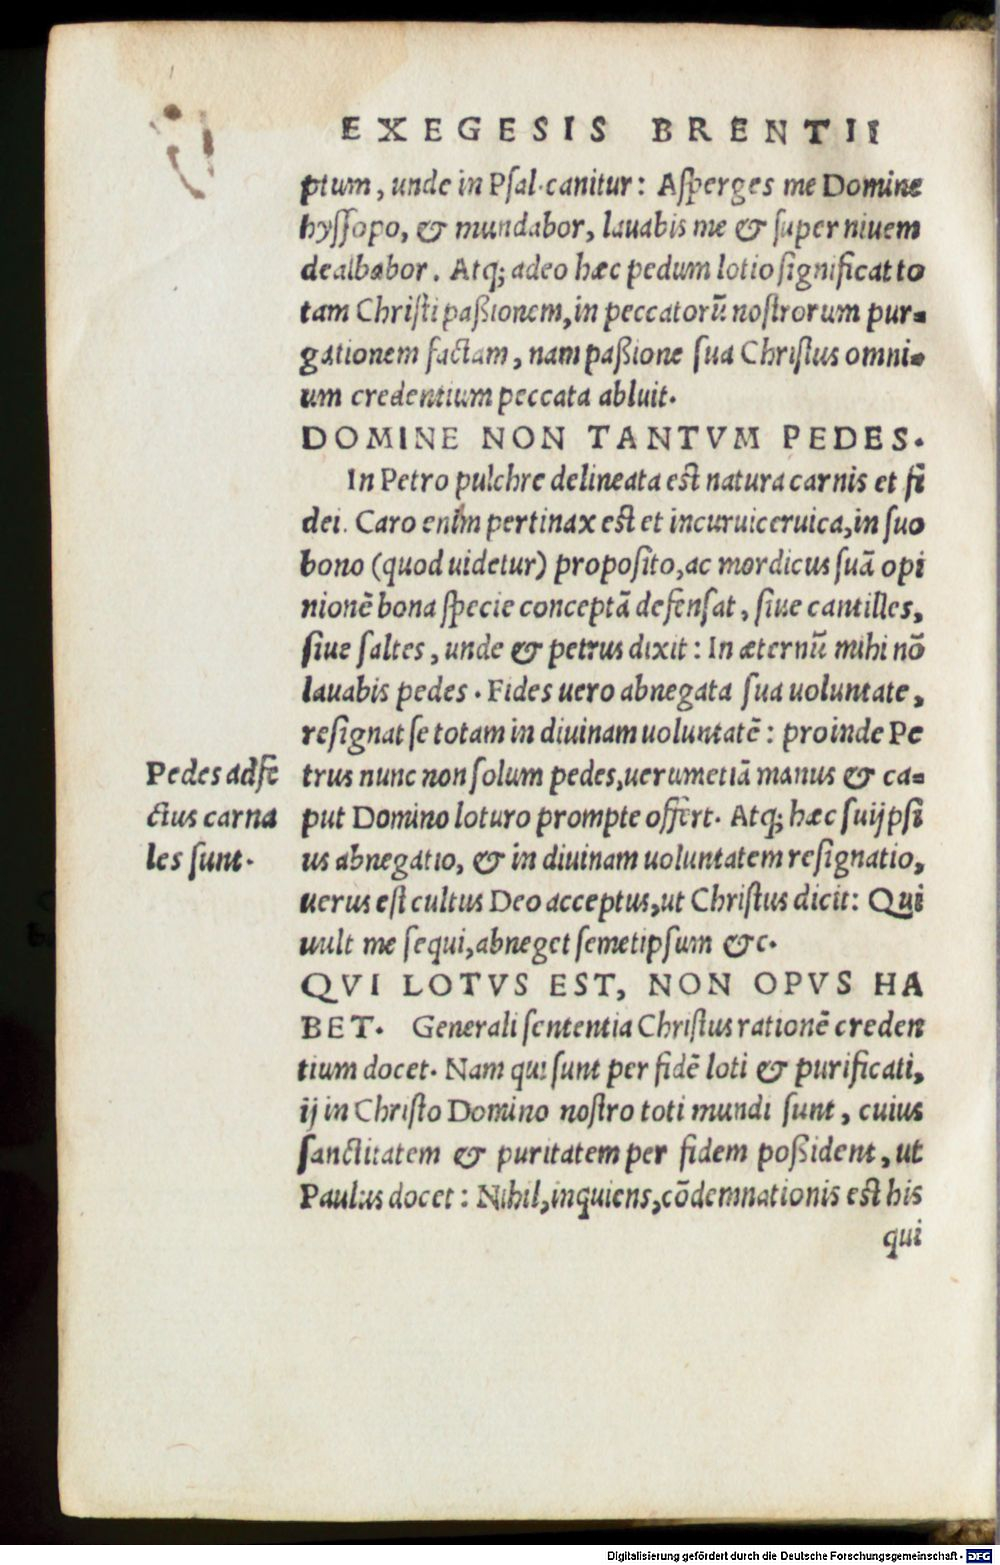 EXEGESIS BRENTII
ptum, unde in Psal. canitur: Asperges me Domine
hyssopo, & mundabor, lauabis me & super niuem
dealbabor. Atq; adeo hæc pedum lotio significat to
tam Christi paßionem, in peccatorũ nostrorum pur=
gationem factam, nam paßione sua Christus omni=
um credentium peccata abluit.
DOMINE NON TANTVM PEDES.
In Petro pulchre delineata est natura carnis et fi
dei. Caro enim pertinax est et incuruiceruica, in suo
bono (quod uidetur) proposito, ac mordicus suã opi
nionẽ bona specie conceptã defensat, siue cantilles,
siue saltes, unde & petrus dixit: In æternũ mihi nõ
lauabis pedes. Fides uero abnegata sua uoluntate,
resignat se totam in diuinam uoluntatẽ: proinde Pe
trus nunc non solum pedes, uerumetiã manus & ca=
put Domino loturo prompte offert. Atq; hæc suijpsi
us abnegatio, & in diuinam uoluntatem resignatio,
uerus est cultus Deo acceptus, ut Christus dicit: Qui
uult me sequi, abneget semetipsum &c.
Pedes adfe
ctus carna
les sunt.
QVI LOTVS EST, NON OPVS HA
BET. Generali sententia Christus rationẽ creden
tium docet. Nam qui sunt per fidẽ loti & purificati,
ij in Christo Domino nostro toti mundi sunt, cuius
sanctitatem & puritatem per fidem poßident, ut
Paulus docet: Nihil, inquiens, cõdemnationis est his
qui
Digitalisierung gefördert durch die Deutsche Forschungsgemeinschaft - DFG